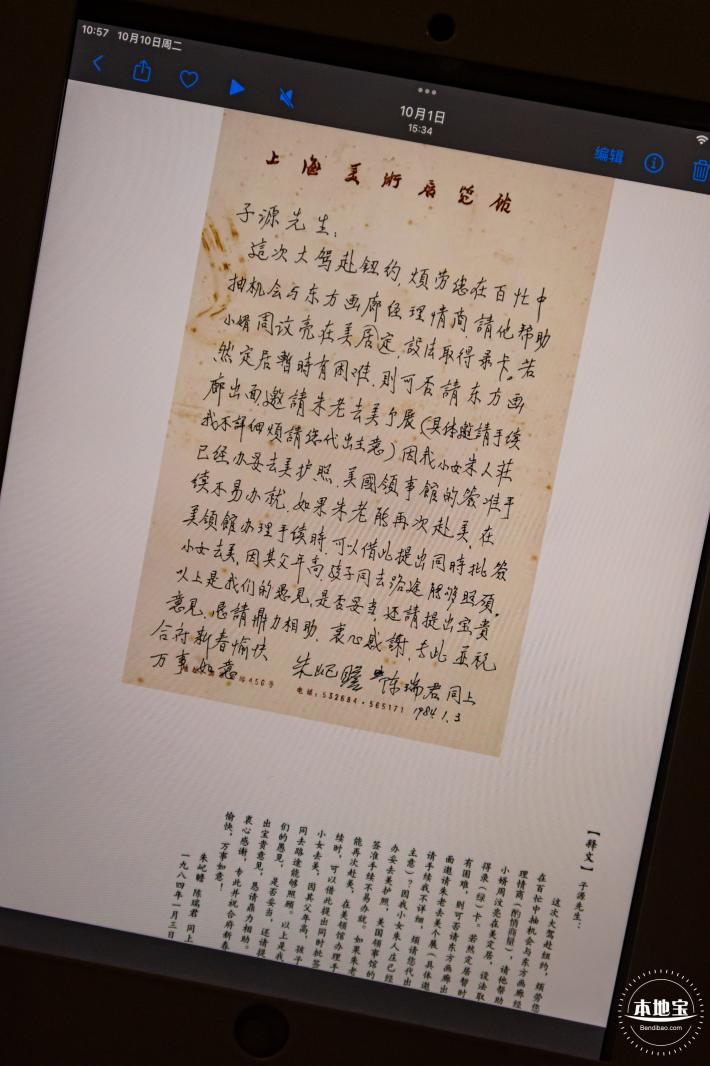 10:57 10月10日周二
10月1日
15:34
编辑
上海美術展览馆
子源先生：
這次大驾赴钮约，煩劳您在百忙中
抽机会与东方画廊经理情商，請他帮助
小婿周汶亮在美居定，設法取得录卡。若
然定居暫時有困难，则可否請东方画
廊出面邀請朱老去美个展（具体邀請手续
我不詳细煩請您代出主意）因我小女朱人莊
已经办妥去美护照，美國領事舘的签准手
续不易办就，如果朱老能再次赴美，在
美領舘办理手续時，可以借此提出同時批签
小女去美，因其父年高孩子同去路途能够照顾。
以上是我们的愚见，是否妥当，还請提出宝貴
意见，恳請鼎力相助，衷心感謝，专此並祝
合府新春愉快
万事如意
朱屺瞻 陈瑞君同上
1984.1.3
路456号
电话：532684·565171
【释文】子源先生：
这次大驾赴纽约，烦劳您
在百忙中抽机会与东方画廊经
理情商（酌情商量），请他帮助
小婿周汶亮在美定居，设法取
得录（绿）卡。若然定居暂时
有困难，则可否请东方画廊出
面邀请朱老去美个展（具体邀
请手续我不详细，烦请您代出
主意）？因我小女朱人庄已经
办妥去美护照，美国领事馆的
签准手续不易办就。如果朱老
能再次赴美，在美领馆办理手
续时，可以借此提出同时批签
小女去美，因其父年高，孩子
同去路途能够照顾。以上是我
们的愚见，是否妥当，还请提
出宝贵意见，恳请鼎力相助。
衷心感谢，专此并祝合府新春
愉快，万事如意！
朱屺瞻 陈瑞君 同上
一九八四年一月三日
本地宝
Bendibao.com